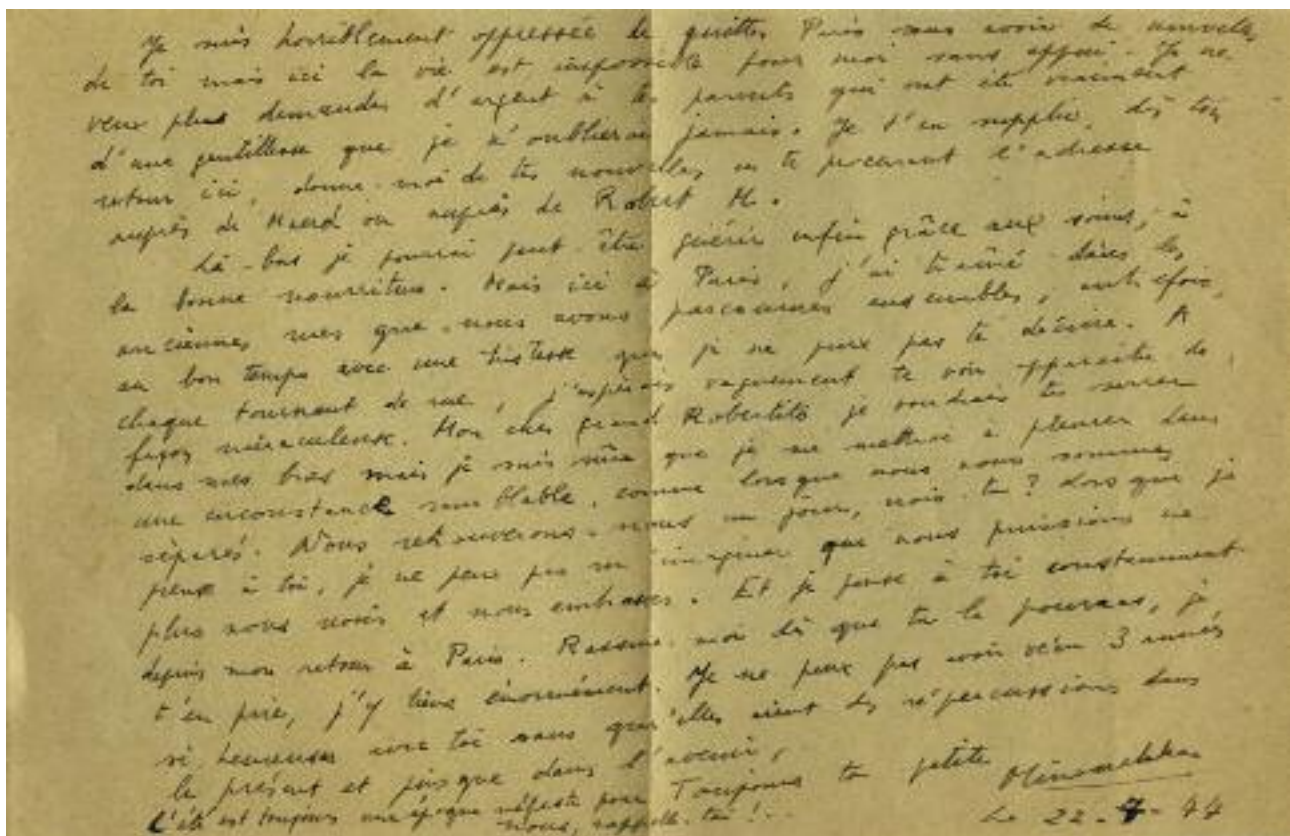 Je suis horriblement oppressée de quitter Paris sans avoir de nouvelles
de toi mais ici la vie est impossible pour moi sans appui. Je ne
veux plus demander d'argent à tes parents qui ont été vraiment
d'une gentillesse que je n'oublierai jamais. Je t'en supplie, dès ton
retour ici, donne-moi de tes nouvelles en te procurant l'adresse
auprès de ou auprès de Robert M.
Là-bas je pourrai peut-être guérir enfin grâce aux soins, à
la bonne nourriture. Mais ici à Paris, j'ai traîné dans les
anciennes rues que nous avons parcourues ensembles, autrefois,
au bon temps avec une tristesse que je ne peux pas te décrire. A
chaque tournant de rue, j'espérais vaguement te voir apparaître de
façon miraculeuse. Mon cher grand Robertito je voudrais te serrer
dans mes bras mais je suis sûre que je me mettrai à pleurer dans
une circonstance semblable, comme lorsque nous nous sommes
séparés. Nous retrouverons-nous un jour, vois-tu? Lorsque je
pense à toi, je ne peux pas m'imaginer que nous puissions ne
plus nous voir et nous embrasser. Et je pense à toi constamment
depuis mon retour à Paris. Rassure-moi dès que tu le pourras, je
t'en prie, j'y tiens énormément. Je ne peux pas avoir vécu 3 années
si heureuses avec toi sans qu'elles aient des répercussions dans
le présent et jusque dans l'avenir.
Toujours ta petite
L'été est toujours une époque néfaste pour
nous, rappelle-toi!..
Le 22-7-44